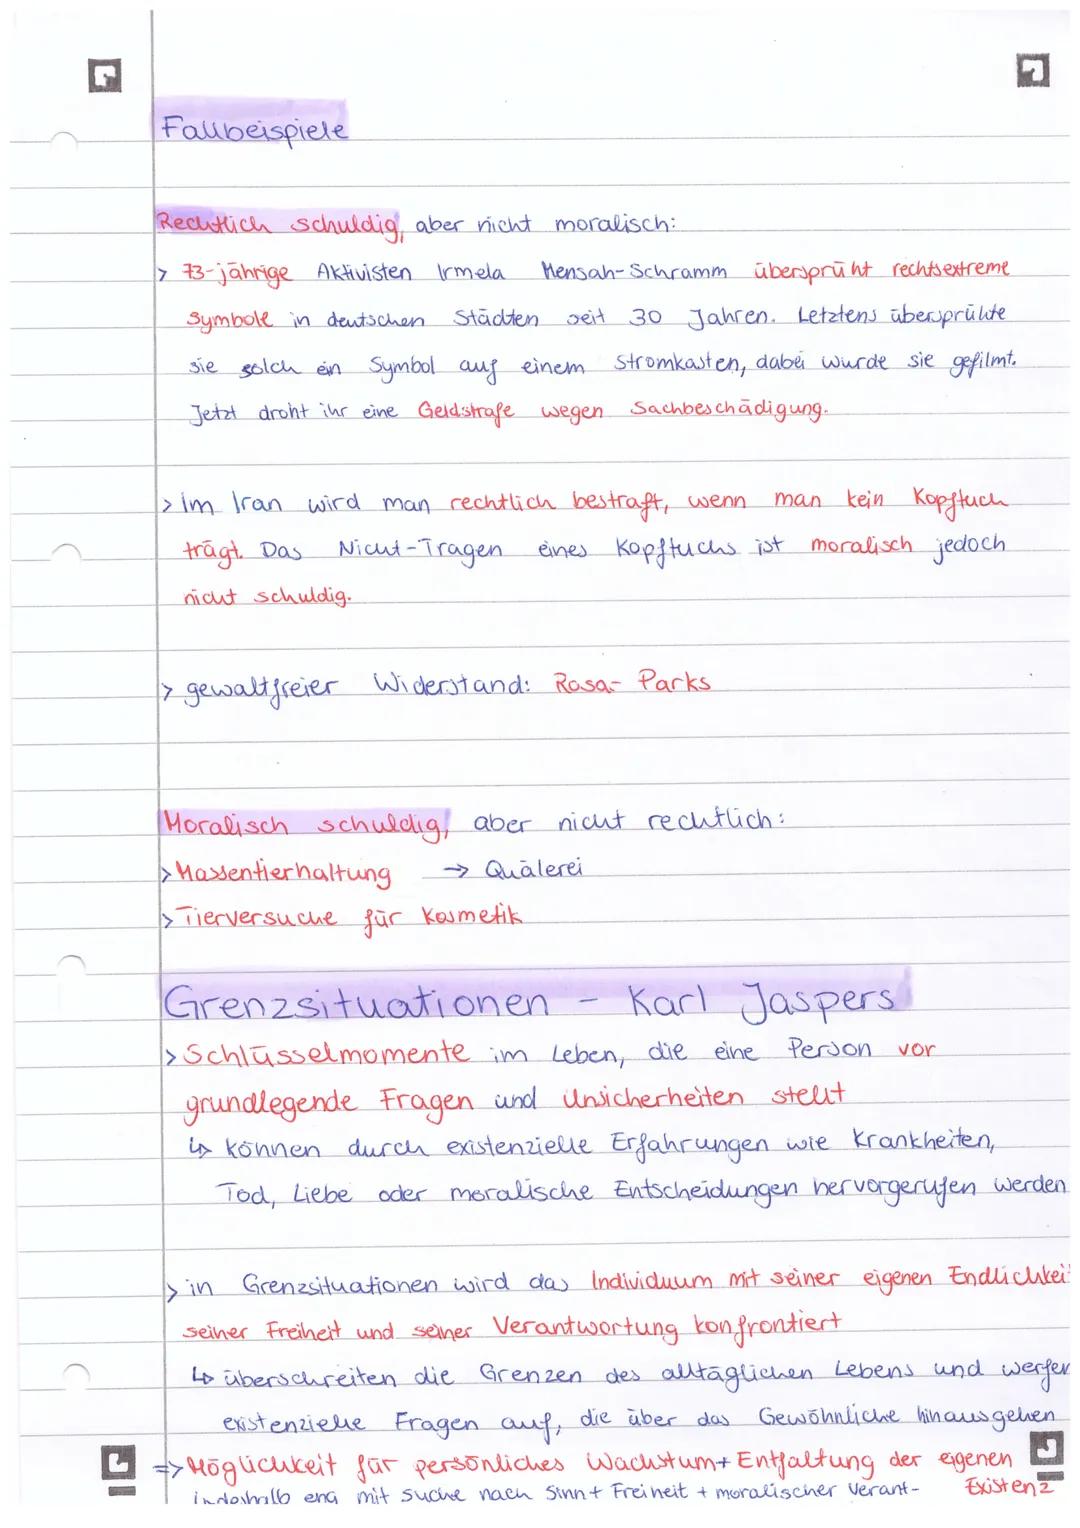 Fallbeispiele
Rechtlich schuldig, aber nicht moralisch:
> 73-jährige Aktivisten Irmela Mensah-Schramm übersprüht rechtsextreme
Symbole in deutschen Städten seit 30 Jahren. Letztens übersprühte
sie solch ein Symbol auf einem Stromkasten, dabei wurde sie gefilmt.
Jetzt droht ihr eine Geldstrafe wegen Sachbeschädigung.
> Im Iran wird man rechtlich bestraft, wenn man kein Kopftuch
trägt. Das Nicht-Tragen eines Kopftuchs ist moralisch jedoch
nicht schuldig.
> gewaltfreier Widerstand: Rosa- Parks
Moralisch schuldig, aber nicht rechtlich:
> Massentierhaltung → Quälerei
> Tierversuche für Kosmetik
Grenzsituationen - Karl Jaspers
> Schlüsselmomente im Leben, die eine Person vor
grundlegende Fragen und Unsicherheiten stellt
↳ können durch existenzielle Erfahrungen wie Krankheiten,
Tod, Liebe oder moralische Entscheidungen hervorgerufen werden
> in Grenzsituationen wird das Individuum mit seiner eigenen Endlichkeit
seiner Freiheit und seiner Verantwortung konfrontiert
↳ überschreiten die Grenzen des alltäglichen Lebens und werfen
existenzielle Fragen auf, die über das Gewöhnliche hinausgehen
=> Möglichkeit für persönliches Wachstum + Entfaltung der eigenen
Existenz
deshalb eng mit Suche nach Sinn + Freiheit + moralischer Verant-